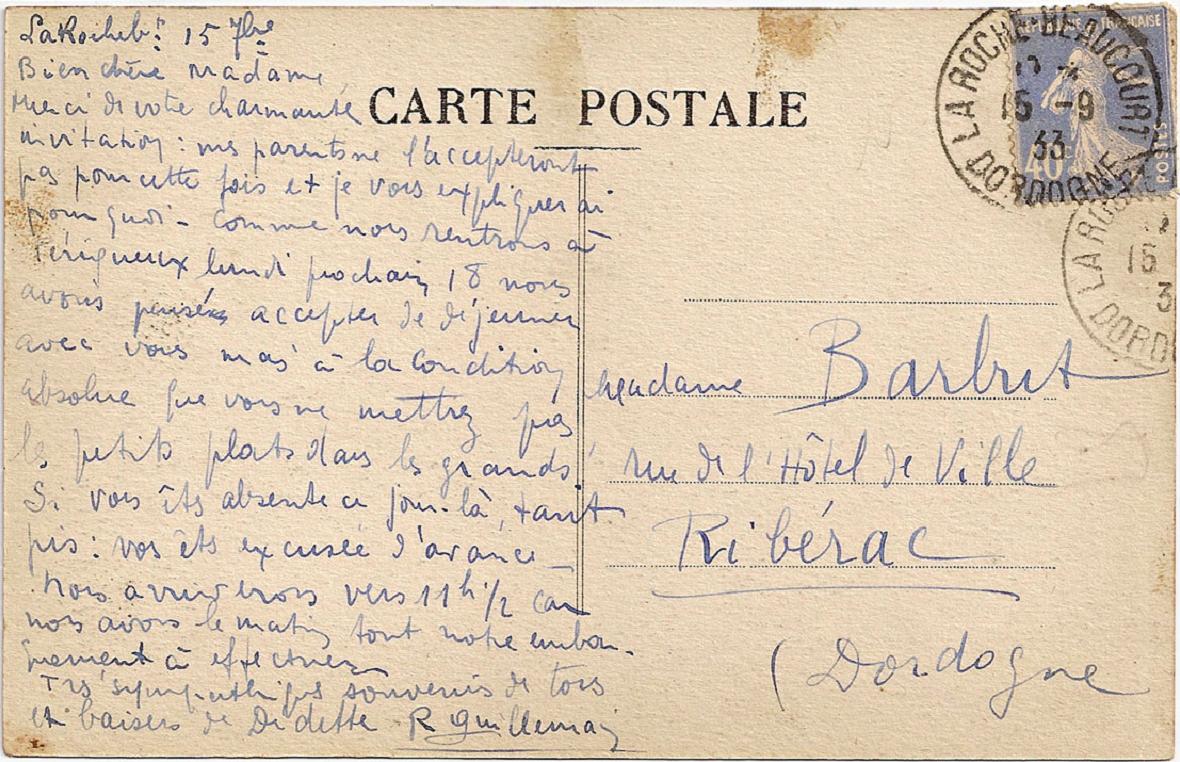 LaRocheb.t 15 7bre
Bien chère Madame,
Merci de votre charmante
invitation : mes parents ne l'accepteront
pas pour cette fois et je vous expliquerai
pourquoi - comme nous rentrons à
Périgueux lundi prochain 18 nous
avons pensé accepter de déjeuner
avec vous mais à la condition
absolue que vous ne mettrez pas
les petits plats dans les grands
Si vous êtes absente ce jour-là, tant
pis : vos êts excusée d'avance -
Nous arriverons vers 11h 1/2 car
nous avons le matin tout notre embar-
quement à effectuer
Très sympathiques souvenirs de tous
et baisers de Didette R Guillemain
CARTE POSTALE
Madame Barbut
rue de l'Hôtel de Ville
Ribérac
(Dordogne
REPUBLIQUE FRANÇAISE
40c
POSTES
LA ROCHE-BEAUCOURT
15 -9
33
DORDOGNE
LA ROCHE
15
3
DORDO